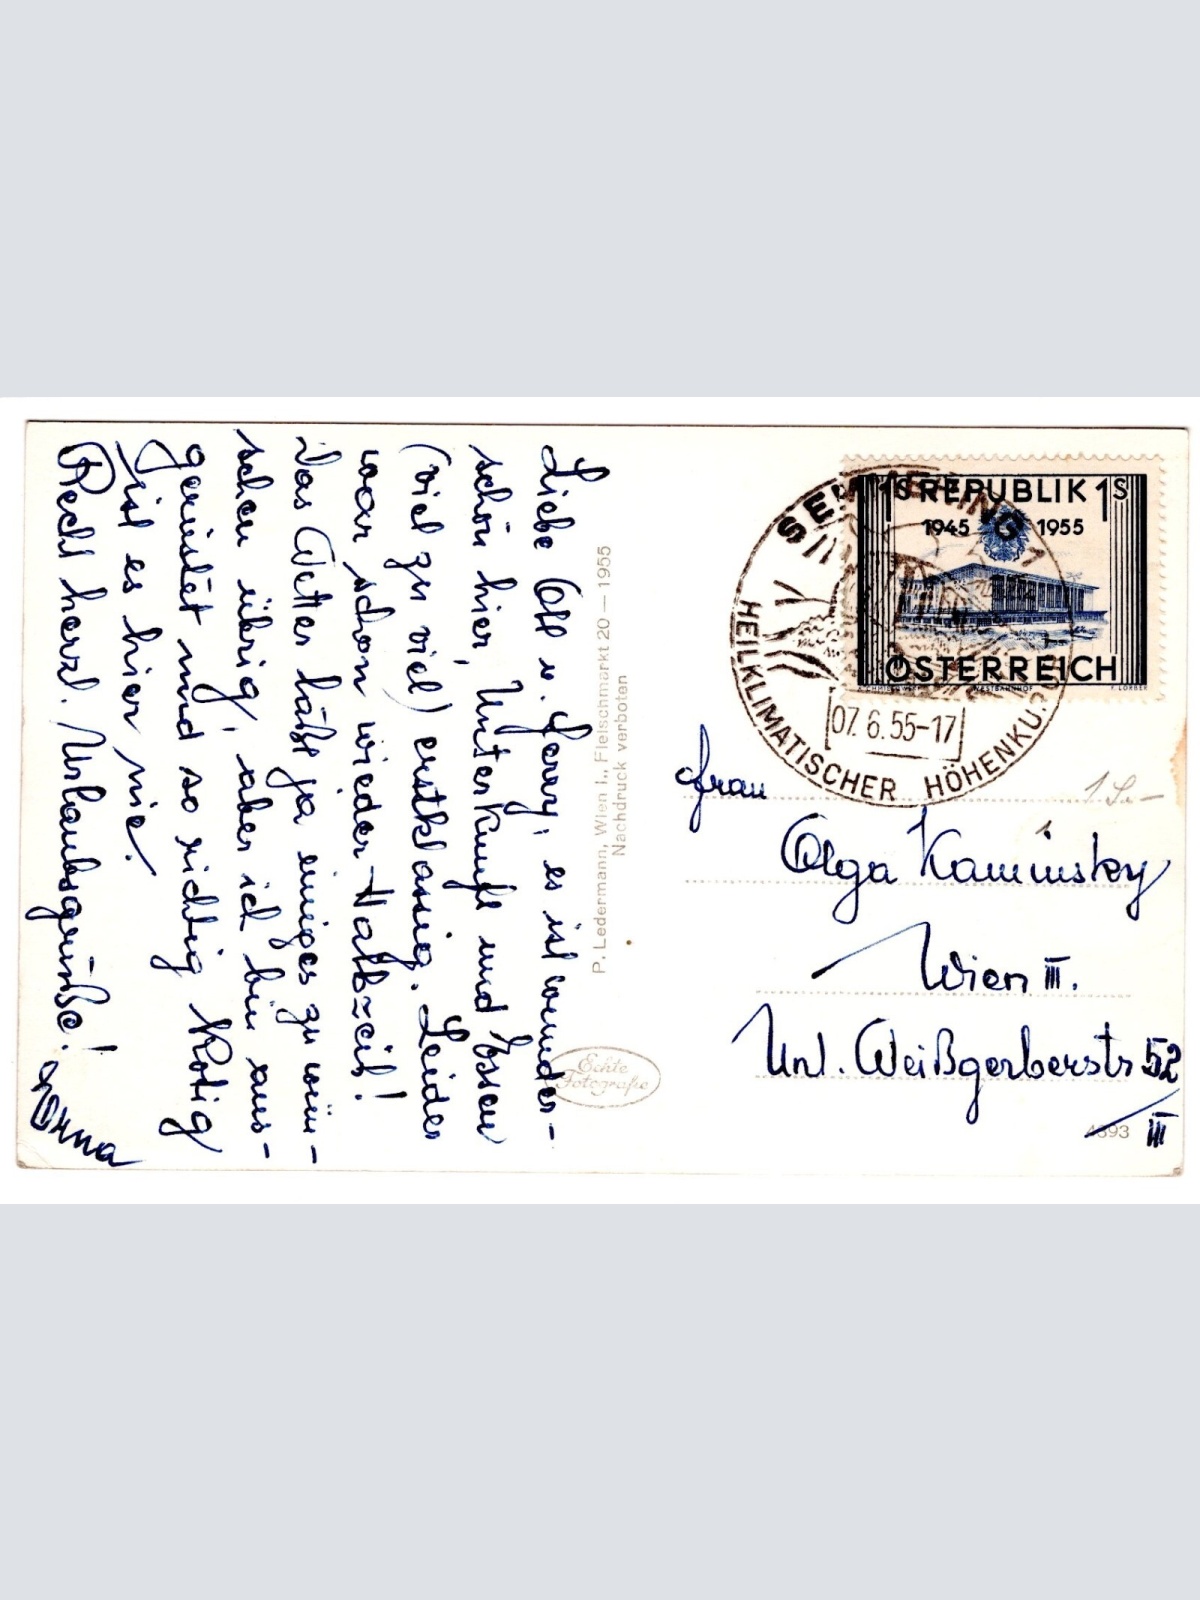 Liebe Oll u. Gerry, es ist wunder-
schön hier, Unterkunft und Essen
(viel zu viel) erstklassig. Leider
war schon wieder Halbzeit!
Das Wetter läßt ja einiges zu wün-
schen übrig, aber ich bin aus-
gerüstet und so richtig kotig
ist es hier nie.
Recht herzl. Urlaubsgrüße!
P. Ledermann, Wien I., Fleischmarkt 20 — 1955
Nachdruck verboten
Echte
Fotografie
SEMMERING 1
HEILKLIMATISCHER HÖHENKU
07.6.55-17
1S REPUBLIK 1S
1945 1955
ÖSTERREICH
WESTBAHNHOF
F. LORBER
1 S.-
Frau
Olga Kaminsky
Wien III.
Unt. Weißgerberstr 52
III
4393